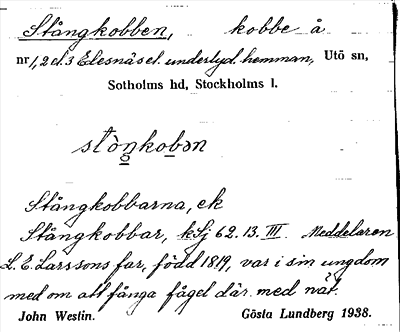 Stångkobben, kobbe å
nr 1, 2 el. 3 Elesnäs el. underlyd. hemman, Utö sn,
Sotholms hd, Stockholms l.
stòŋkobən
Stångkobbarna, ek
Stångkobbar, kSj 62.13.III. Meddelaren
L. E. Larssons far, född 1819, var i sin ungdom
med om att fånga fågel där med nät.
John Westin. Gösta Lundberg 1938.